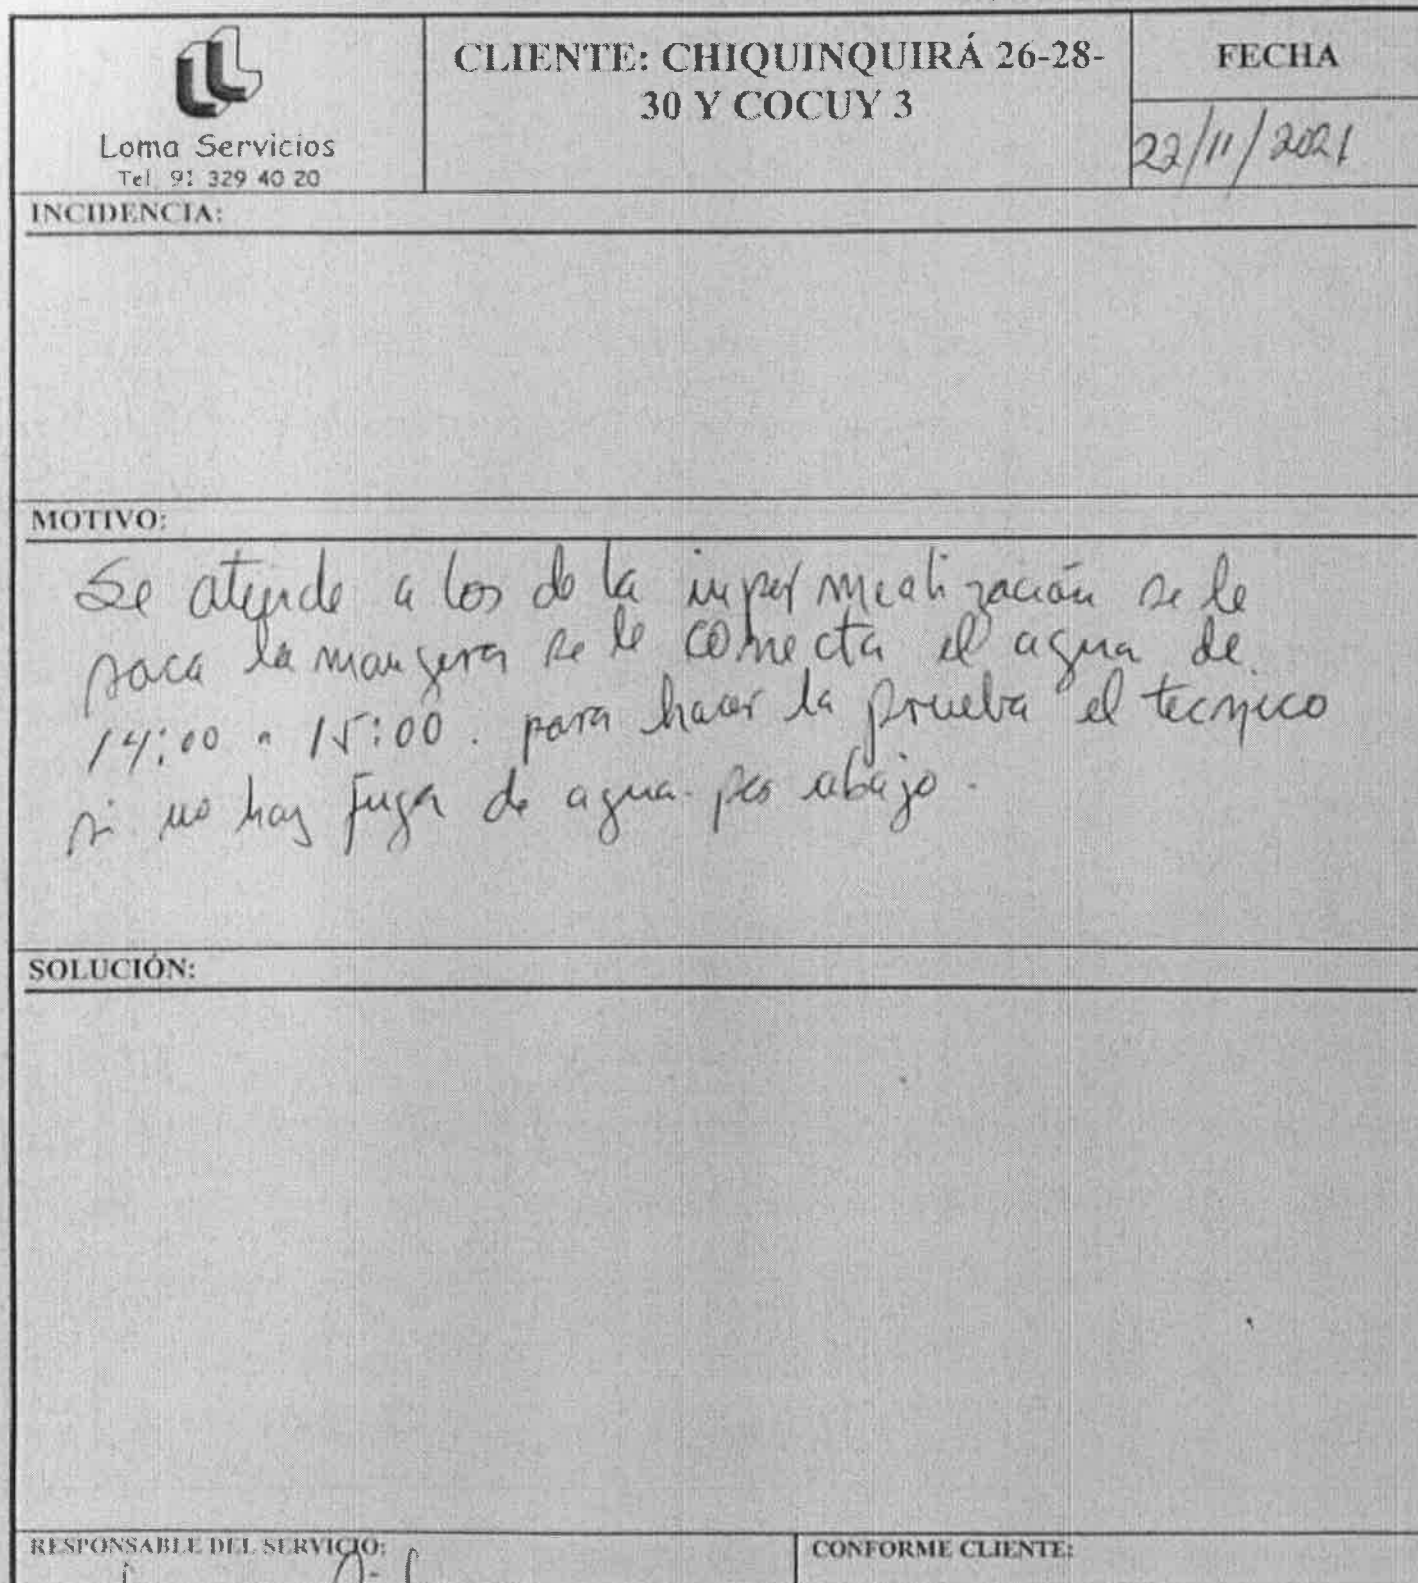 Loma Servicios
Tel 91 329 40 20
CLIENTE: CHIQUINQUIRÁ 26-28-
30 Y COCUY 3
FECHA
22/11/2021
INCIDENCIA:
MOTIVO:
Se atiende a los de la inpermealización se le
saca la manguera se le connecta el agua de
14:00 a 15:00. para hacer la prueba el tecnico
si no hay fuga de agua por abajo.
SOLUCIÓN:
RESPONSABLE DEL SERVICIO:
CONFORME CLIENTE: